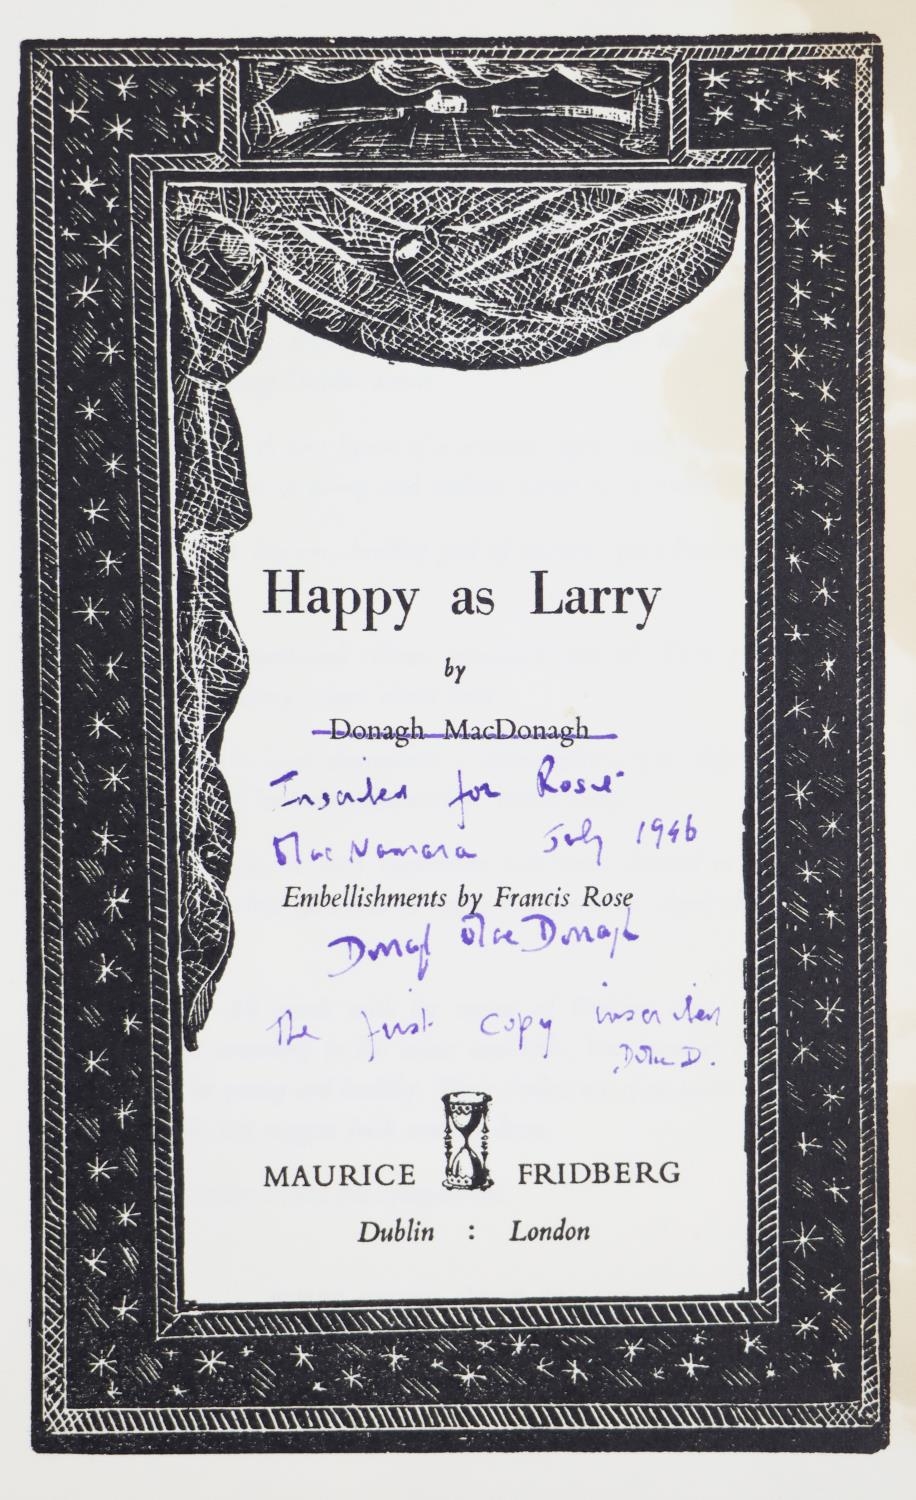 Happy as Larry
by
Donagh MacDonagh
Inscribed for Rosie
MacNamara July 1946
Embellishments by Francis Rose
Donagh MacDonagh
The first copy inscribed
D. MacD.
MAURICE FRIDBERG
Dublin : London